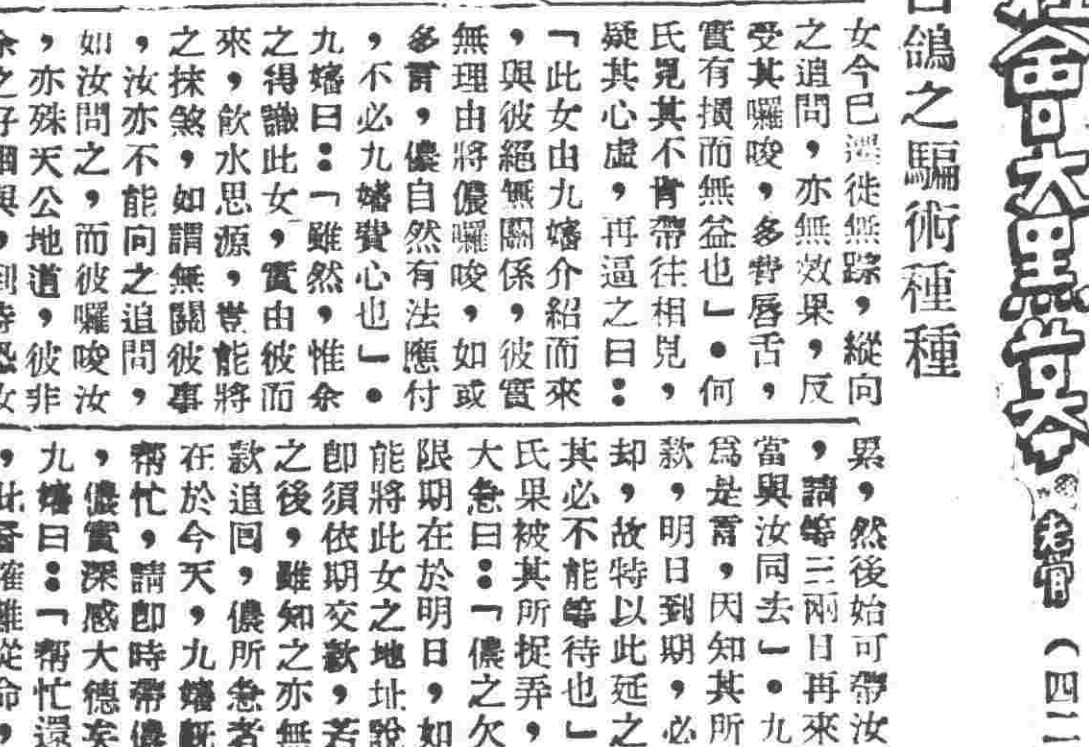 社會大黑幕 老骨 (四二
白鴿之騙術種種
女今已遷徙無踪，縱向
之追問，亦無效果，反
受其囉唆，多費唇舌，
實有損而無益也」。何
氏見其不肯帶往相見，
疑其心虛，再逼之曰：
「此女由九嬸介紹而來
，與彼絕無關係，彼實
無理由將儂囉唆，如或
多言，儂自然有法應付
，不必九嬸費心也」。
九嬸曰：「雖然，惟余
之得識此女，實由彼而
來，飲水思源，豈能將
之抹煞，如謂無關彼事
，汝亦不能向之追問，
如汝問之，而彼囉唆汝
，亦殊天公地道，彼非
累，然後始可帶汝
，請等三兩日再來
當與汝同去」。九
為是言，因知其所
款，明日到期，必
却，故特以此延之
其必不能等待也」
氏果被其所捉弄，
大急曰：「儂之欠
限期在於明日，如
能將此女之地址說
即須依期交款，若
之後，雖知之亦無
款追回，儂所急者
在於今天，九嬸既
帮忙，請即時帶儂
，儂實深感大德矣
九嬸曰：「帮忙還